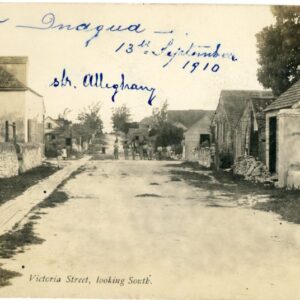 Inagua —
13th September
1910
str. Alleghany
Victoria Street, looking South.